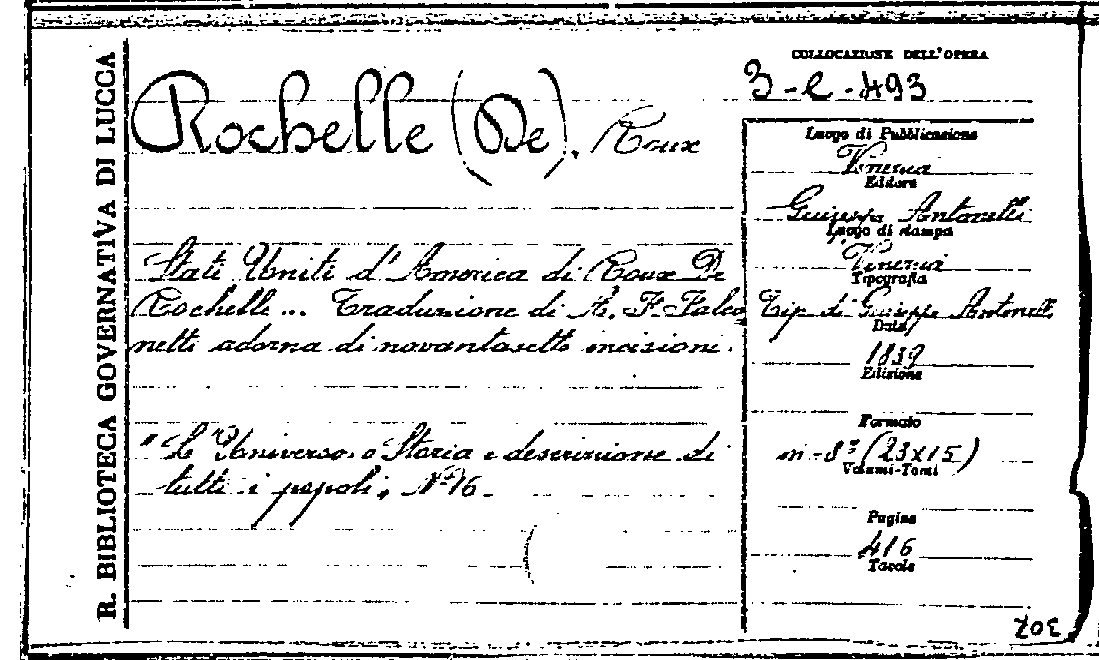 R. BIBLIOTECA GOVERNATIVA DI LUCCA
Rochelle (De), Roux
Stati Uniti d'America di Roux De
Rochelle ... Traduzione di A. F. Falco
netti adorna di novantasette incisioni.
"L'Universo, o Storia e descrizione di
tutti i popoli, N° 16.
COLLOCAZIONE DELL'OPERA
3-e-493
Luogo di Pubblicazione
Venezia
Editore
Giuseppe Antonelli
Luogo di stampa
Venezia
Tipografia
Tip. di Giuseppe Antonelli
Data
1839
Edizione
Formato
in-8° (23x15)
Volumi-Tomi
Pagine
416
Tavole